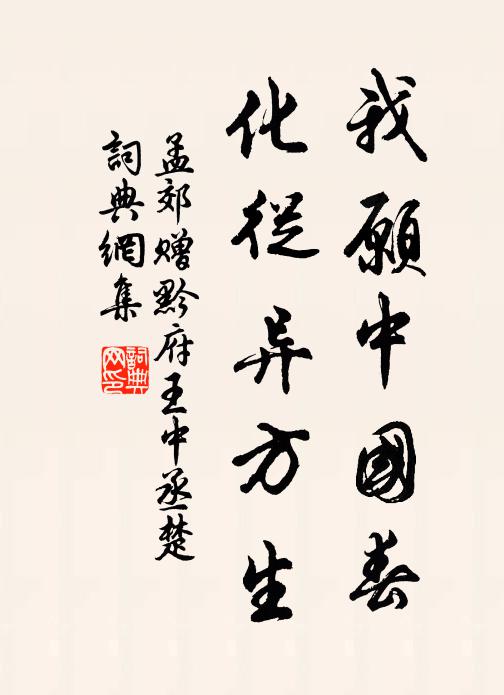 我願中國春
化從异方生
孟郊贈黔府王中丞楚
詞典網集
詞典網印